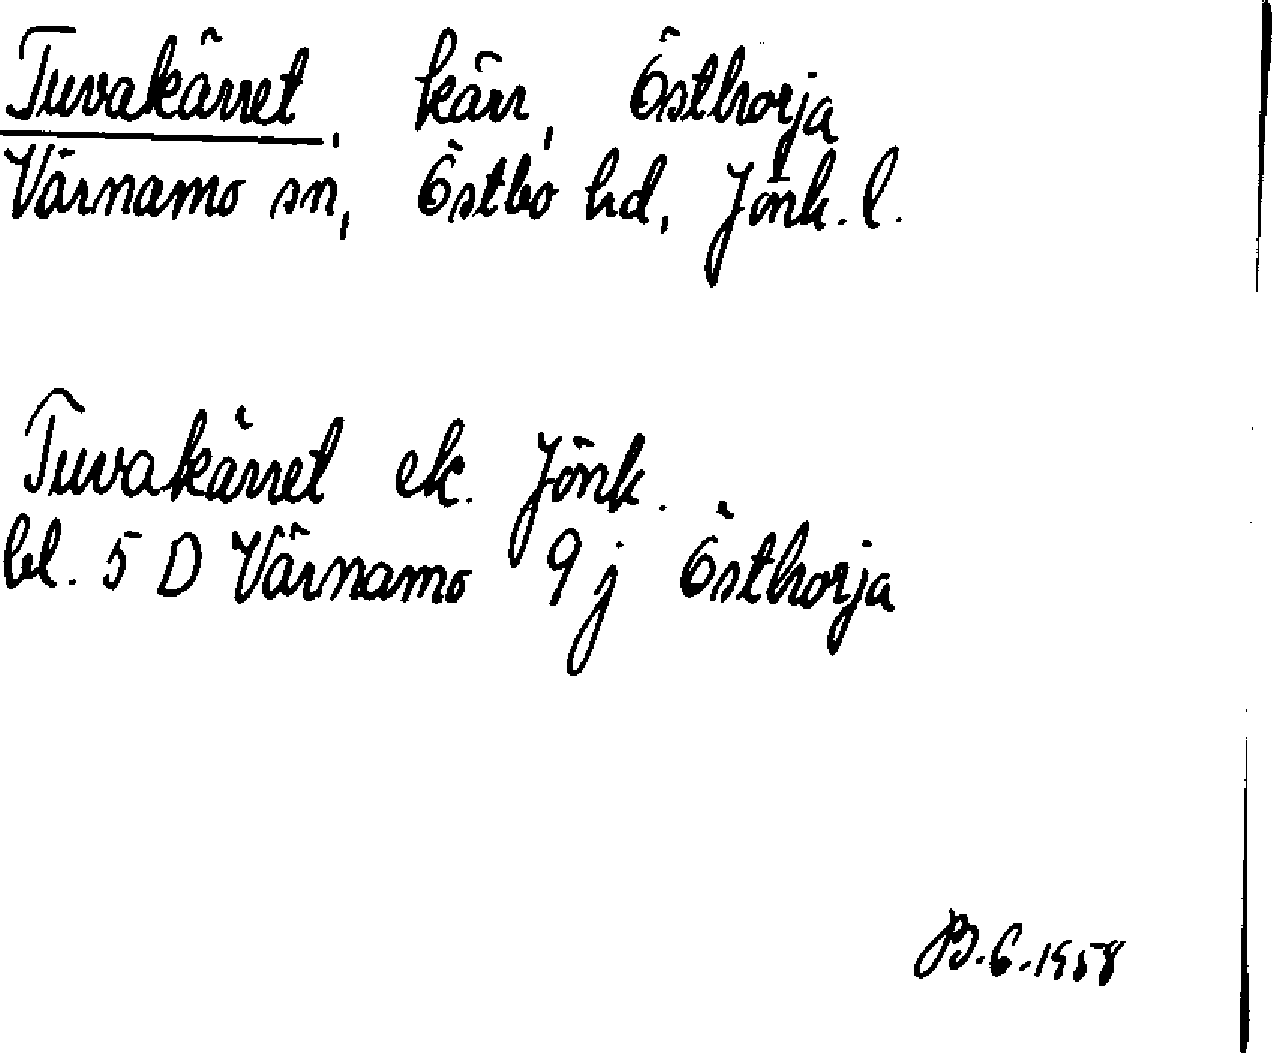 Tuvakärret, kärr, Östhorja
Värnamo sn, Östbo hd, Jönk. l.
Tuvakärret ek. Jönk.
bl. 5 D Värnamo 9 j Östhorja
B. G. 1958